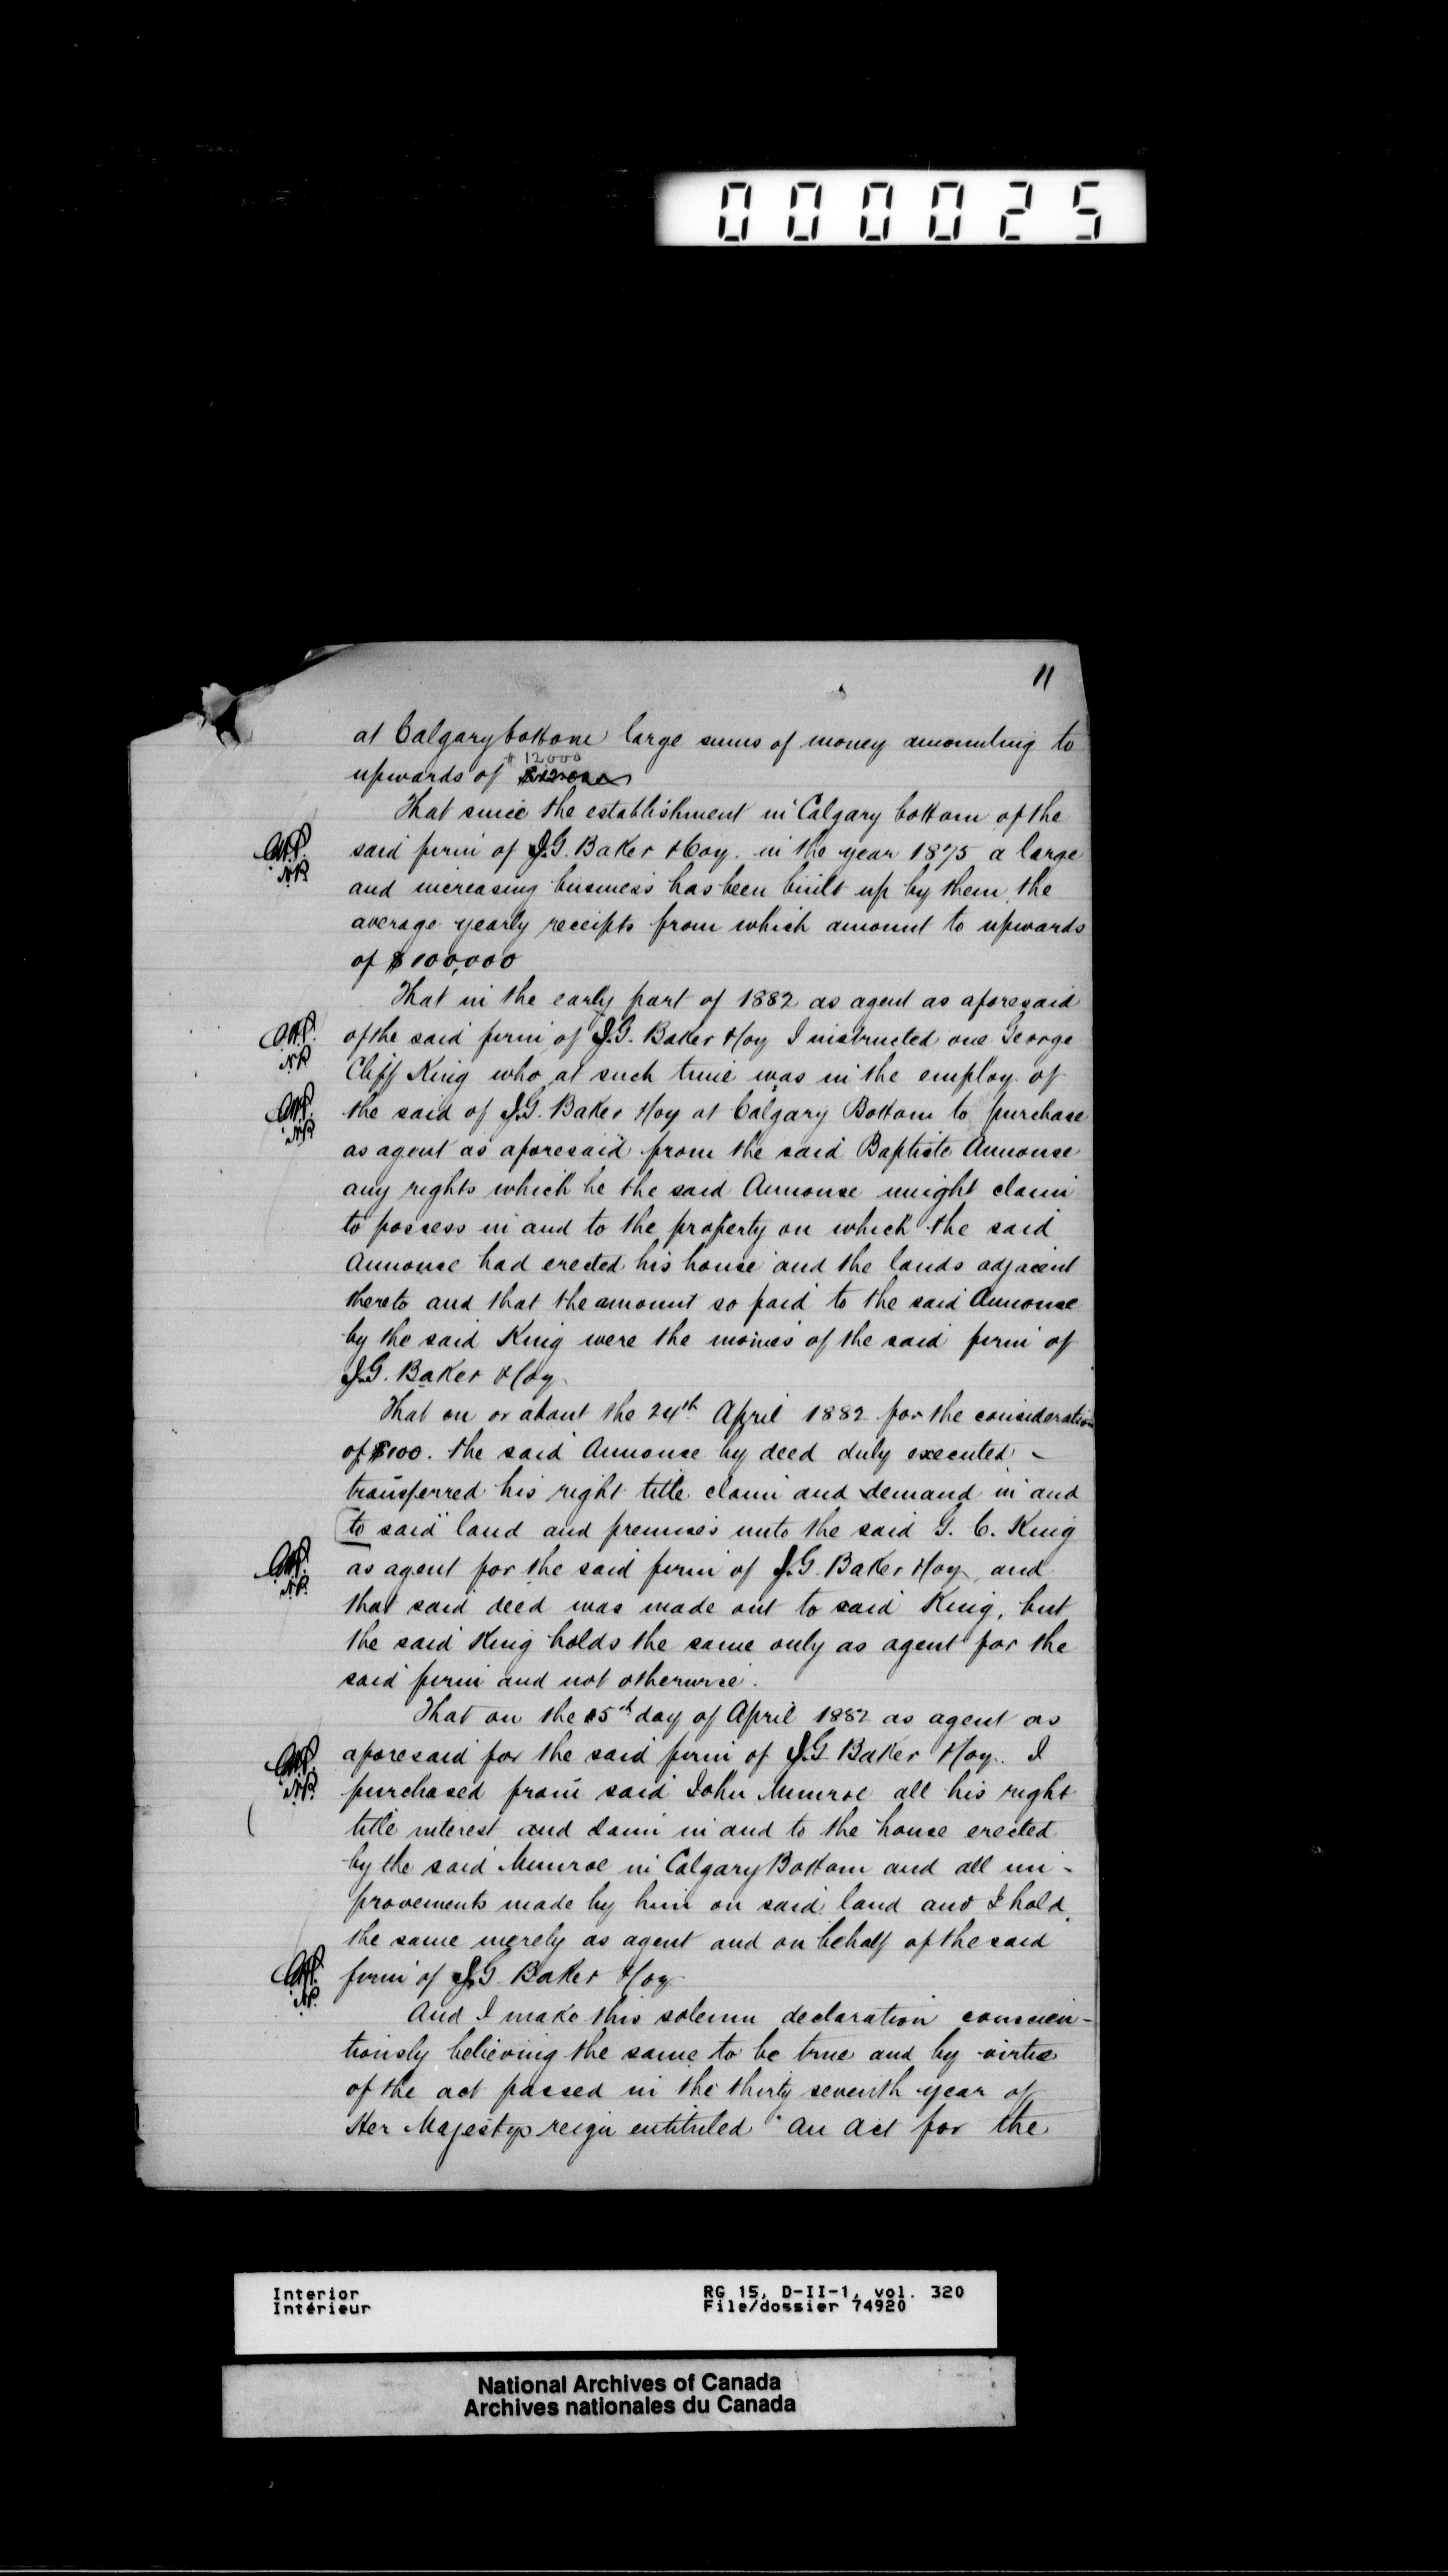 000025
11
at Calgary bottom large sums of money amounting to
$12000
upwards of $12000
That since the establishment in Calgary bottom of the
said firm of J.G. Baker & Coy. in the year 1875 a large
N.P.
and increasing business has been built up by them, the
average yearly receipts from which amount to upwards
of $100,000
That in the early part of 1882 as agent as aforesaid
of the said firm of J.G. Baker & Coy I instructed one George
N.P.
Cliff King who at such time was in the employ of
the said of J.G. Baker & Coy at Calgary Bottom to purchase
N.P.
as agent as aforesaid from the said Baptiste Annouse
any rights which he the said Annouse might claim
to possess in and to the property on which the said
Annouse had erected his house and the lands adjacent
thereto and that the amount so paid to the said Annouse
by the said King were the monies of the said firm of
J.G. Baker & Coy.
That on or about the 24th April 1882 for the consideration
of $100. the said Annouse by deed duly executed
transferred his right title claim and demand in and
to said land and premises unto the said G. C. King
as agent for the said firm of J.G. Baker & Coy, and
N.P.
that said deed was made out to said King, but
the said King holds the same only as agent for the
said firm and not otherwise.
That on the 15th day of April 1882 as agent as
aforesaid for the said firm of J.G. Baker & Coy. I
N.P.
purchased from said John Munroe all his right
title interest and claim in and to the house erected
by the said Munroe in Calgary Bottom and all im-
provements made by him on said land and I hold
the same merely as agent and on behalf of the said
firm of J.G. Baker & Coy.
N.P.
And I make this solemn declaration conscien-
tiously believing the same to be true and by virtue
of the act passed in the thirty seventh year of
Her Majestys reign entituled "An Act for the
Interior
Intérieur
RG 15, D-II-1, vol. 320
File/dossier 74920
National Archives of Canada
Archives nationales du Canada